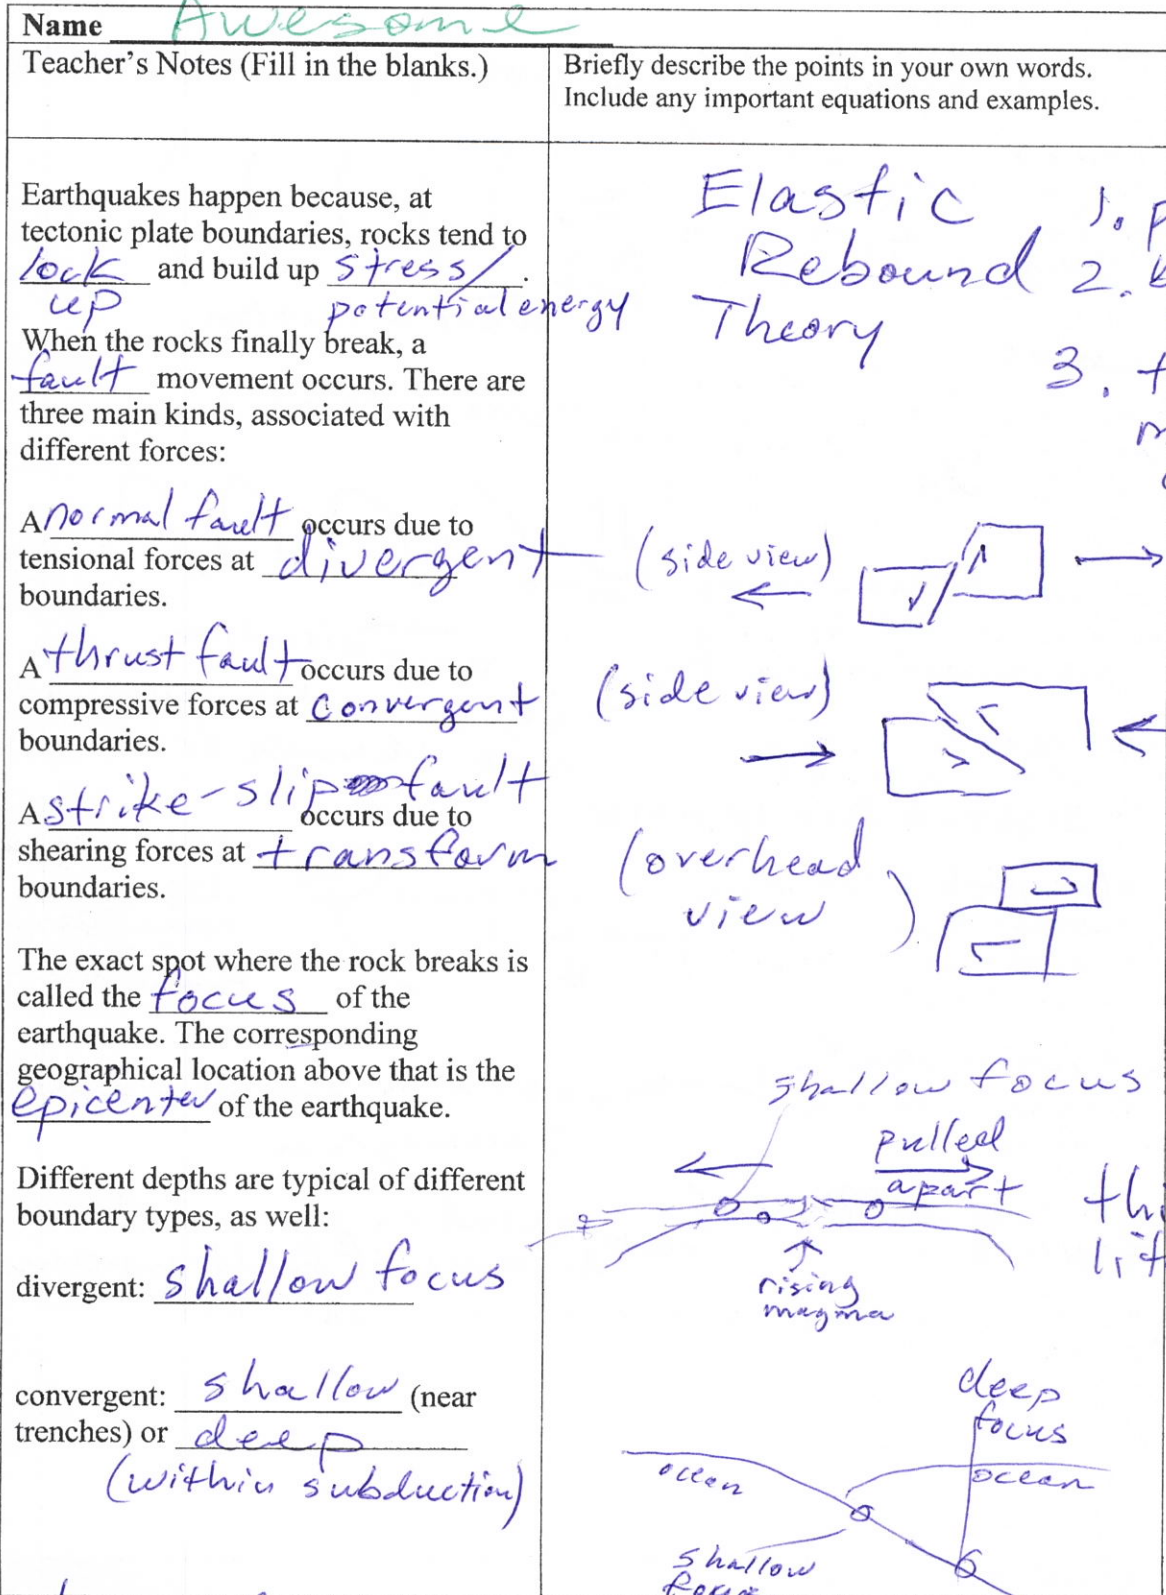 Name Awesome
Teacher's Notes (Fill in the blanks.)
Briefly describe the points in your own words.
Include any important equations and examples.
Earthquakes happen because, at
tectonic plate boundaries, rocks tend to
lock up and build up stress/potential energy.
When the rocks finally break, a
fault movement occurs. There are
three main kinds, associated with
different forces:
A normal fault occurs due to
tensional forces at divergent
boundaries.
A thrust fault occurs due to
compressive forces at convergent
boundaries.
A strike-slip fault occurs due to
shearing forces at transform
boundaries.
The exact spot where the rock breaks is
called the focus of the
earthquake. The corresponding
geographical location above that is the
epicenter of the earthquake.
Different depths are typical of different
boundary types, as well:
divergent: shallow focus
convergent: shallow (near
trenches) or deep
(within subduction)
Elastic
Rebound
Theory
1.
2.
3.
(side view)
(side view)
(overhead
view)
shallow focus
pulled
apart
rising
magma
deep
focus
ocean
ocean
shallow
focus